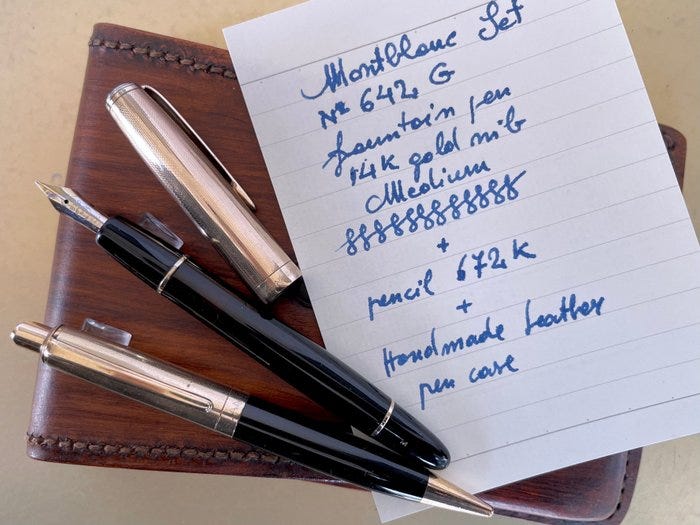 Montblanc Set
Nº 642 G
fountain pen
14K gold nib
Medium
+
pencil 672 K
+
Handmade leather
pen case